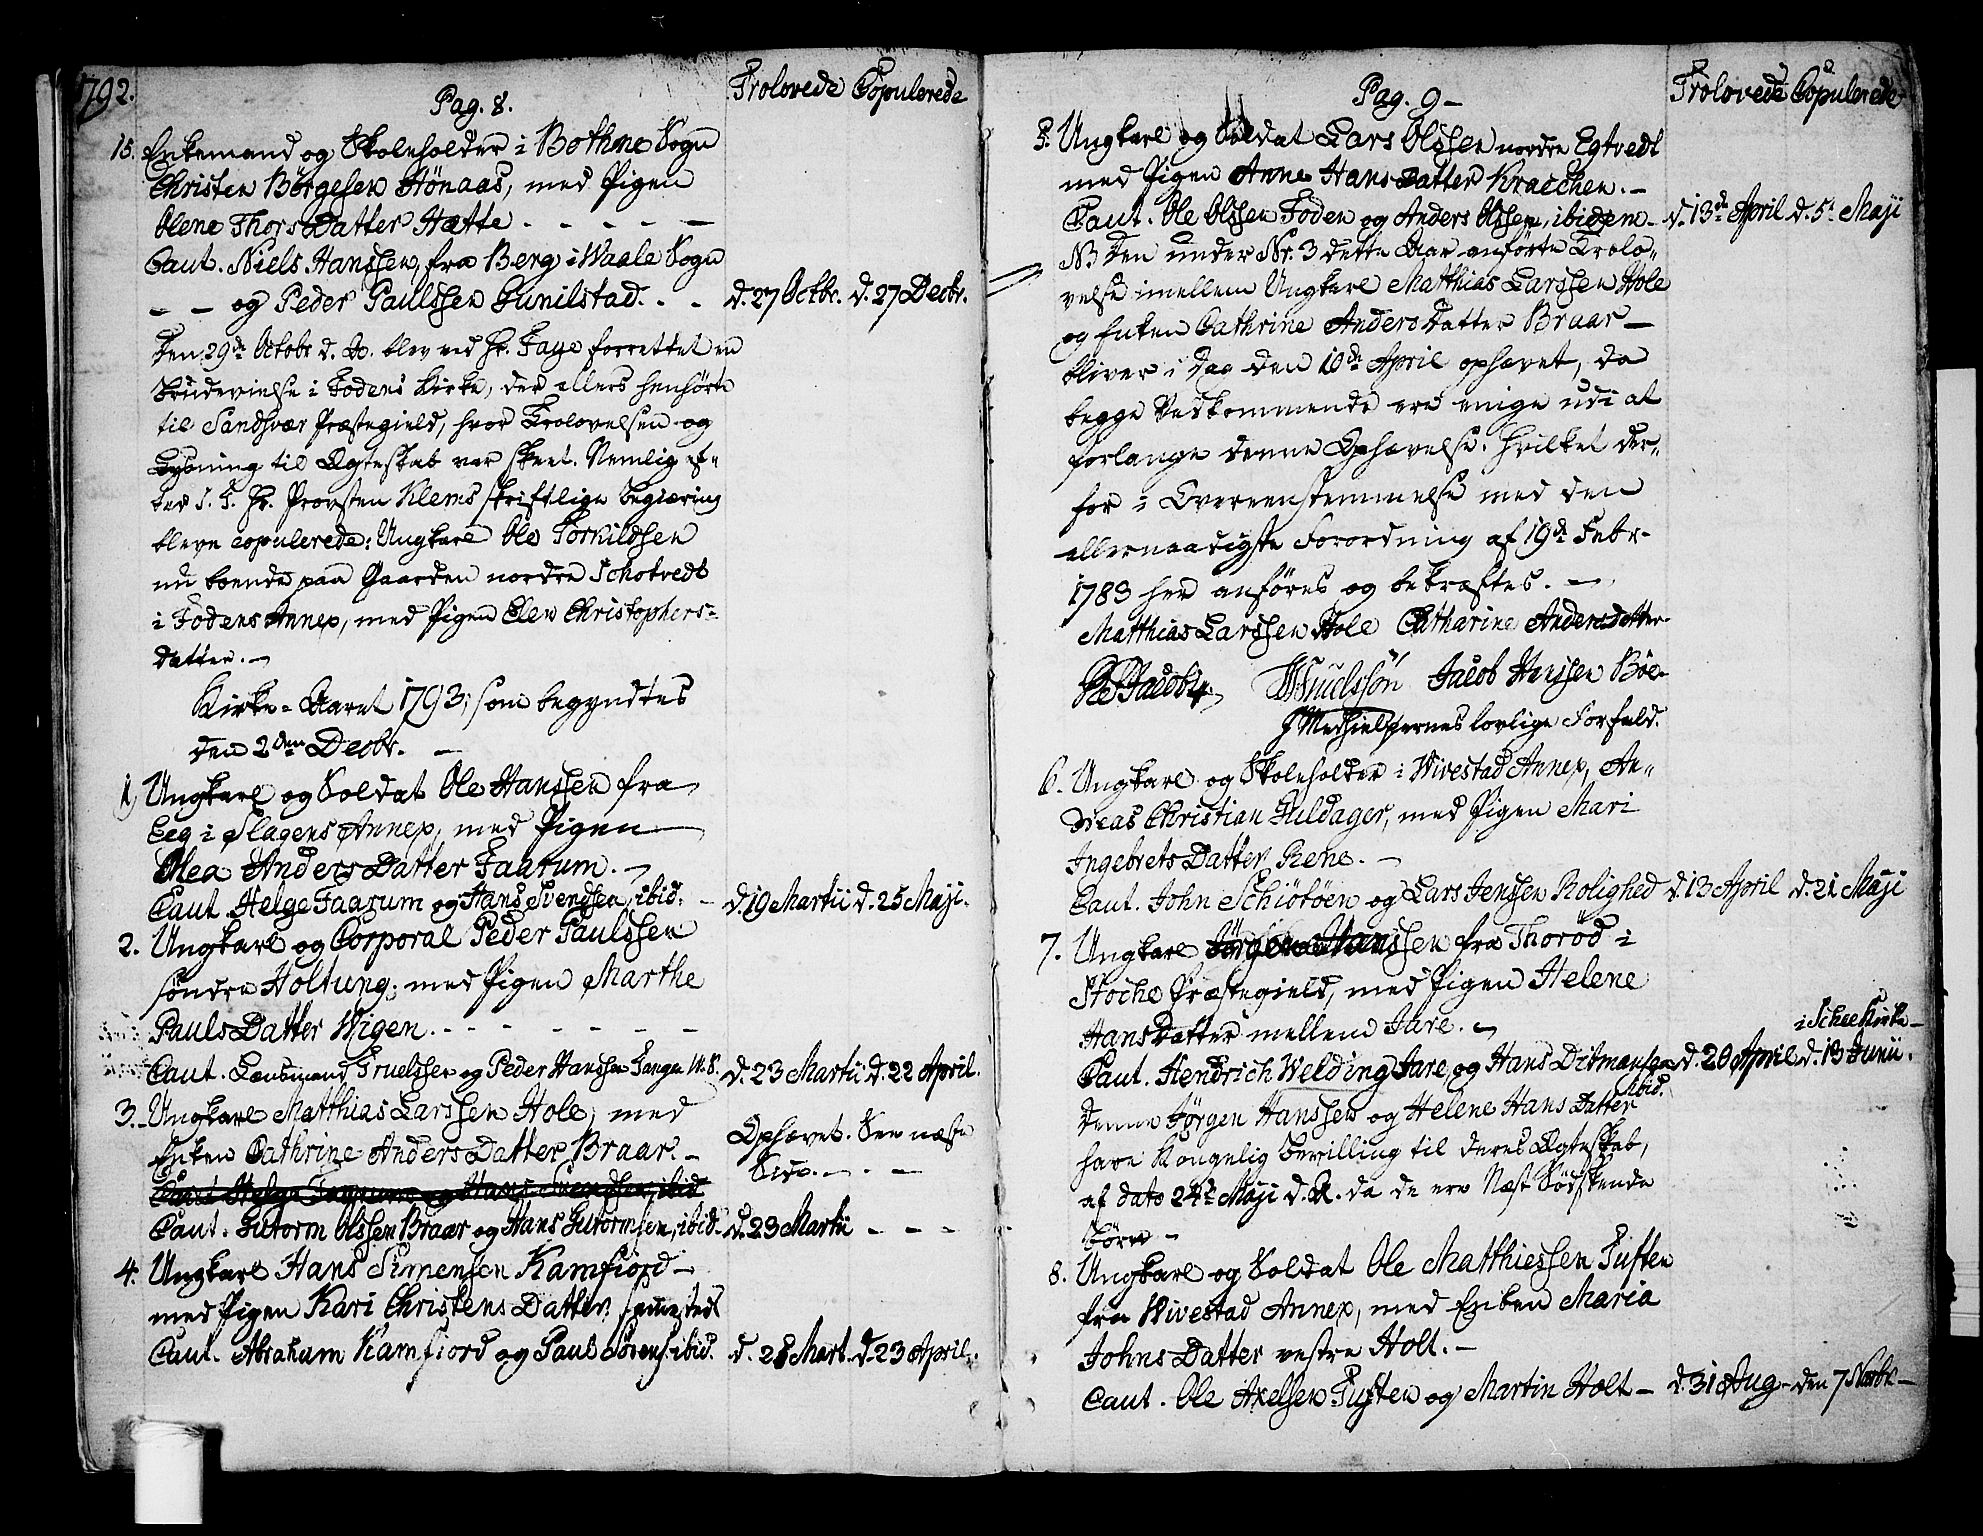 1792.
Pag. 8.
Trolovede Copulerede
15. Enkemand og Skoleholder i Bothne Sogn
Christen Børgesen Hönaas, med Pigen
Olene ThorsDatter Hætte - - - - -
Caut. Niels Hanssen, fra Berg i Waale Sogn
— — og Peder Paulssen Gunilstad. - - d. 27 Octbr. d. 27 Decbr.
Den 29de Octobr d. A. blev ved Hr. Faye forrettet en
Brudevielse i Fodens Kirke, der ellers henhørte
til Sandsvær Præstegield, hvor Trolovelsen og
Lysning til Ægteskab var skeet. Nemlig ef„
ter S. T. Hr. Provsten Klems skriftlige begiæring
bleve copulerede: Ungkarl Ole Torkildsen
nu boende paa Gaarden nordre Schotvedt
i Fodens Annex, med Pigen Elen Christophers-
datter. —
Kirke-Aaret 1793, som begyndtes
den 2den Decbr. —
1, Ungkarl og Soldat Ole Hanssen fra
Eeg i Slagens Annex, med Pigen
Olea AndersDatter Faarum. —
Caut. Helge Faarum og Hans Svendsen, ibid: - d. 19 Martii d. 25 Maji.
2. Ungkarl og Corporal Peder Paulssen
søndre Holtung, med Pigen Marthe
PaulsDatter Wigen. - - - - - - -
Caut. Lænsmand Truelssen og Peder Hanssen Tange W.S. d. 23 Martii d. 22 April.
3. Ungkarl Matthias Larssen Hole, med
Enken Cathrine AndersDatter Braar. —
Ophævet. See næste
Side. — - —
Caut Helge Faarum og Hans Svendsen, ibid
Caut. Gutorm Olssen Braar og Hans Gutormsen, ibid - d. 23 Martii - - -
4. Ungkarl Hans Simensen Kamfiord —
med Pigen Kari ChristensDatter, sammested
Caut. Abraham Kamfiord og Paul Sörens. ibid. d. 28 Mart. d. 23 April.
Pag. 9 —
Trolovede Copulerede
5. Ungkarl og Soldat Lars Olssen nordre Egtvedt
med Pigen Anne HansDatter Kraechen. —
Caut. Ole Olssen Foden og Anders Olssen, ibidem — d. 13de April d. 5te Maji
NB Den under Nr. 3 dette Aar anførte Trolo„
velse imellem Ungkarl Matthias Larssen Hole
og Enken Cathrine AndersDatter Braar —
bliver i Dag den 10de April ophævet, da
begge Vedkommende ere enige udi at
forlange denne Ophævelse. Hvilket der„
for i Overeenstemmelse med den
allernaadigste Forordning af 19de Febr.
1783 her anføres og bekræftes. —
Matthias Larssen Hole Catharine Andersdatter
Truelssön Jacob Hanssen Böe
Medhielpernes lovlige Forfald.
6. Ungkarl og Skoleholder i Wivestad Annex, An„
dreas Christian Huldager, med Pigen Mari
IngebretsDatter Rene. —
Caut. John Schiötöen og Lars Jenssen Rolighed d. 13 April d. 21 Maji
7. Ungkarl Jørgen Hanssen fra Thorød i
Stocke Præstegield, med Pigen Helene
HansDatter mellem Jare. —
i Schee Kirke —
Caut. Hendrich Welding Jare og Hans Ditmansen d. 20 April d. 13 Junii.
ibid.
Denne Jørgen Hanssen og Helene HansDatter
have Kongelig Bevilling til deres Ægteskab,
af dato 24de Maji d. A. da de ere Næst Södskende
børn —
8. Ungkarl og Soldat Ole Matthiessen Tuften
fra Wivestad Annex, med Enken Maria
JohnsDatter vestre Holt. —
Caut. Ole Axelsen Tuften og Martin Holt — d. 31 Aug — den 7 Novbr —